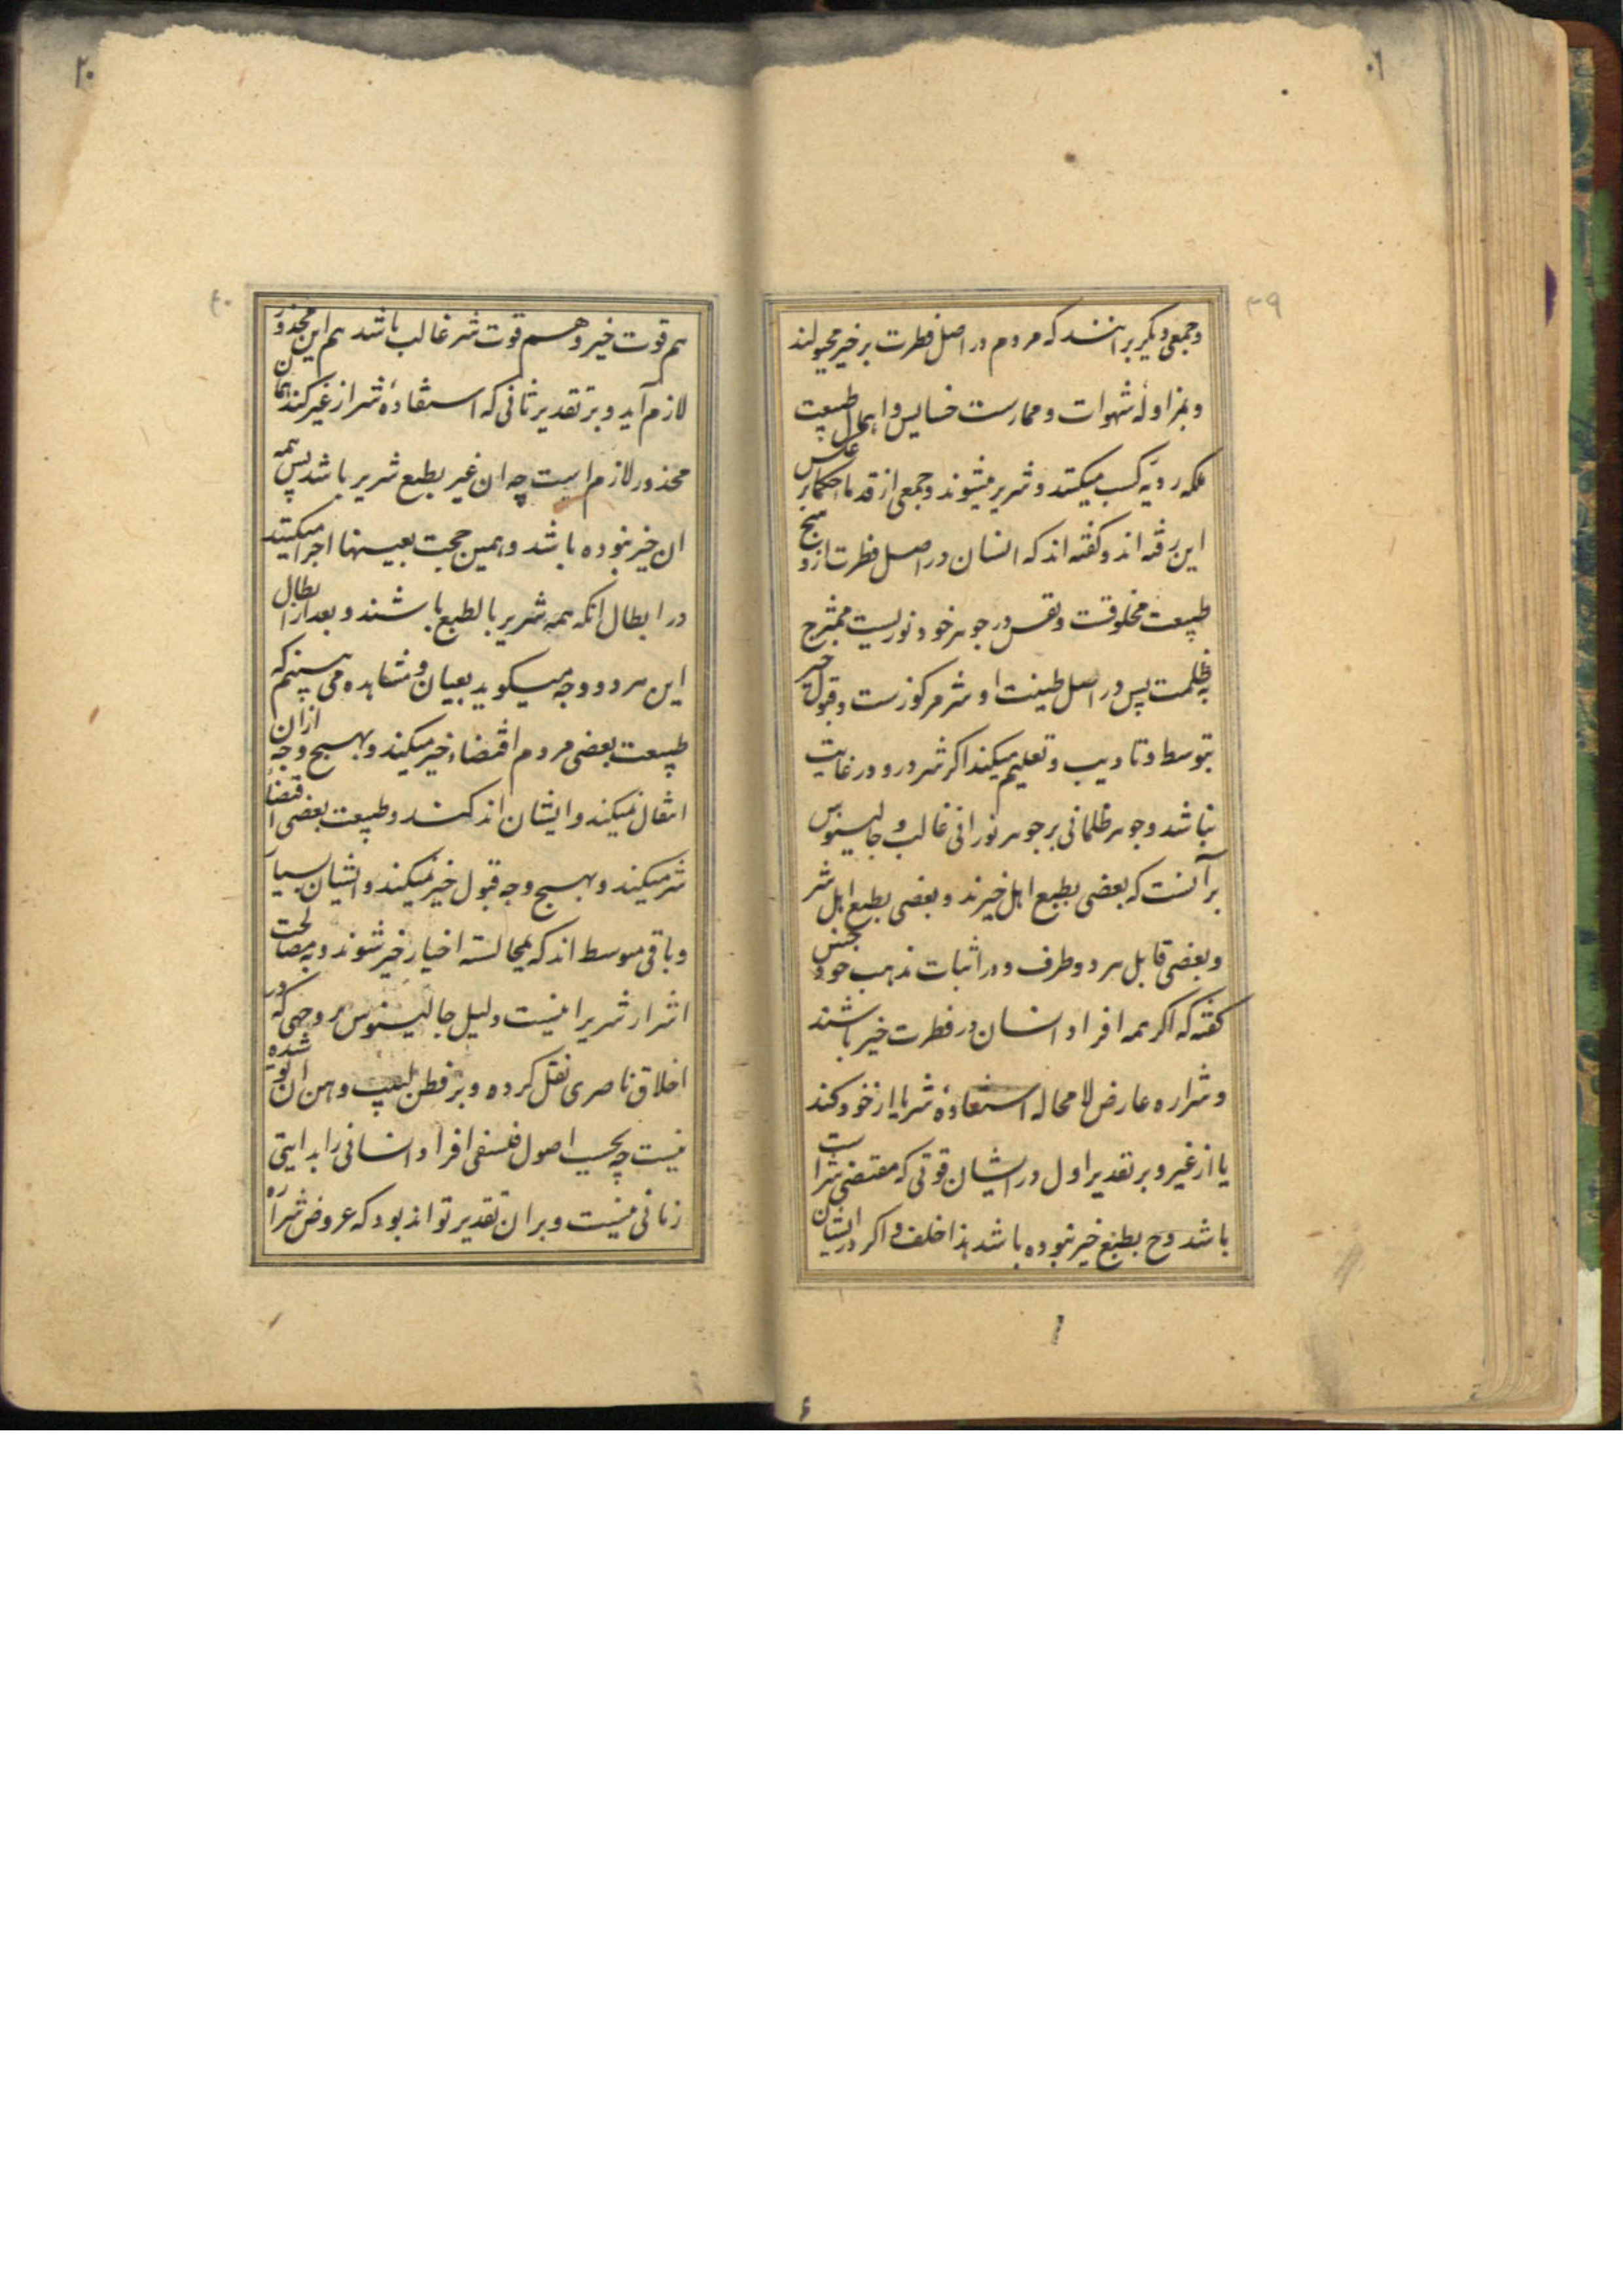 ۳۹
وجمعی دیگر برانند که مردم در اصل فطرت بر خیر مجبولند
وبمزاولهٔ شهوات و ممارست خسایس و اهمال طبیعت
ملکه ردیّه کسب میکنند و شریر میشوند و جمعی از قدماء حکما بر عکس
این رفته اند و کفته اند که انسان در اصل فطرت از وسخ
طبیعت مخلوقست و نفس در جوهر خود نوریست ممتزج
بظلمت پس در اصل طینت او شر مرکوزست و قبول خیر
بتوسط و تادیب و تعلیم میکند اکر شر درو در غایت
نباشد و جوهر ظلمانی بر جوهر نورانی غالب و جالینوس
بر آنست که بعضی بطبع اهل خیرند و بعضی بطبع اهل شر
و بعضی قابل هر دو طرف و در اثبات مذهب خود
کفته که اکر همه افراد انسان در فطرت خیر باشند
و شراره عارض لا محاله استفادهٔ شر یا از خود کنند
یا از غیر و بر تقدیر اول در ایشان قوتی که مقتضی شر است
باشد وح بطبع خیر نبوده باشد هذا خلف و اکر در ایشان
۴۰
هم قوت خیر و هم قوت شر غالب باشد هم این محذور
لازم آید و بر تقدیر ثانی که استفادهٔ شر از غیر کنند همان
محذور لازم است چه ان غیر بطبع شریر باشد پس همه
ان خیر نبوده باشد و همین حجت بعینها اجرا میکنند
در ابطال انکه همه شریر بالطبع باشند و بعد از ابطال
این هر دو وجه میکوید بعیان و مشاهده می بینیم که
طبیعت بعضی مردم اقتضاء خیر میکند و بهیچ وجه ازان
انتقال نمیکند و ایشان اندکند و طبیعت بعضی اقتضأ
شر میکند و بهیچ وجه قبول خیر نمیکند و ایشان بسیار
و باقی متوسط اند که بمجالسته اخیار خیر شوند و به مصاحبت
اشرار شریر اینست دلیل جالینوس بر وجهی که در
اخلاق ناصری نقل کرده و بر فطن لبیب وهن ان پوشیده
نیست چه بحسب اصول فلسفی افراد انسانی را بدایتی
زمانی نیست و بران تقدیر تواند بود که عروض شراره